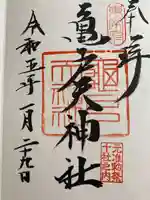 奉拝
亀戸天神社
元准勅祭
十社之内
令和五年一月二十九日